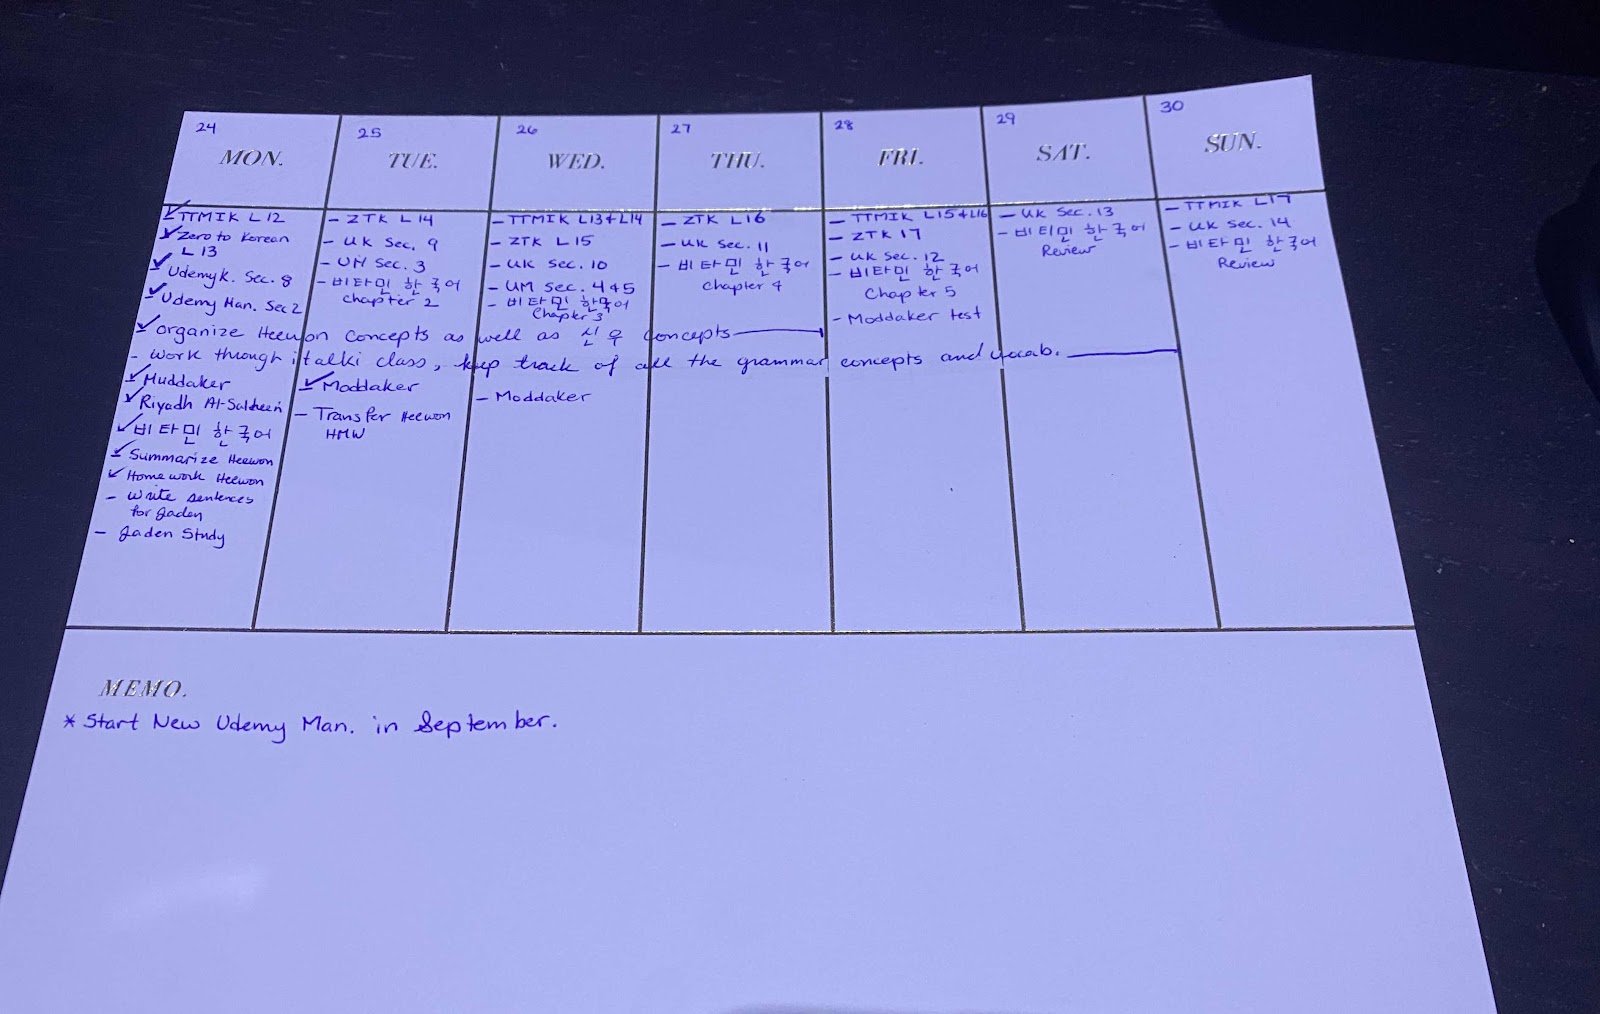 24
MON.
- TTMIK L 12
- Zero to Korean
L 13
- Udemy K. Sec. 8
- Udemy Man. Sec 2
25
TUE.
- ZTK L 14
- UK Sec. 9
- UM Sec. 3
- 비타민 한국어
chapter 2
26
WED.
- TTMIK L13+L14
- ZTK L 15
- UK Sec. 10
- UM Sec. 4+5
- 비타민 한국어
Chapter 3
27
THU.
- ZTK L16
- UK Sec. 11
- 비타민 한국어
Chapter 4
28
FRI.
- TTMIK L15+L16
- ZTK 17
- UK Sec. 12
- 비타민 한국어
Chapter 5
- Moddaker test
29
SAT.
- UK Sec. 13
- 비타민 한국어
Review
30
SUN.
- TTMIK L17
- UK Sec. 14
- 비타민 한국어
Review
- organize Heewon concepts as well as 신우 concepts
- work through italki class, keep track of all the grammar concepts and vocab.
- Muddaker
- Riyadh Al-Saliheen
- 비타민 한국어
- Summarize Heewon
- Homework Heewon
- Write sentences
for Jaden
- Jaden Study
- Moddaker
- Transfer Heewon
HMW
- Moddaker
MEMO.
* Start New Udemy Man. in September.